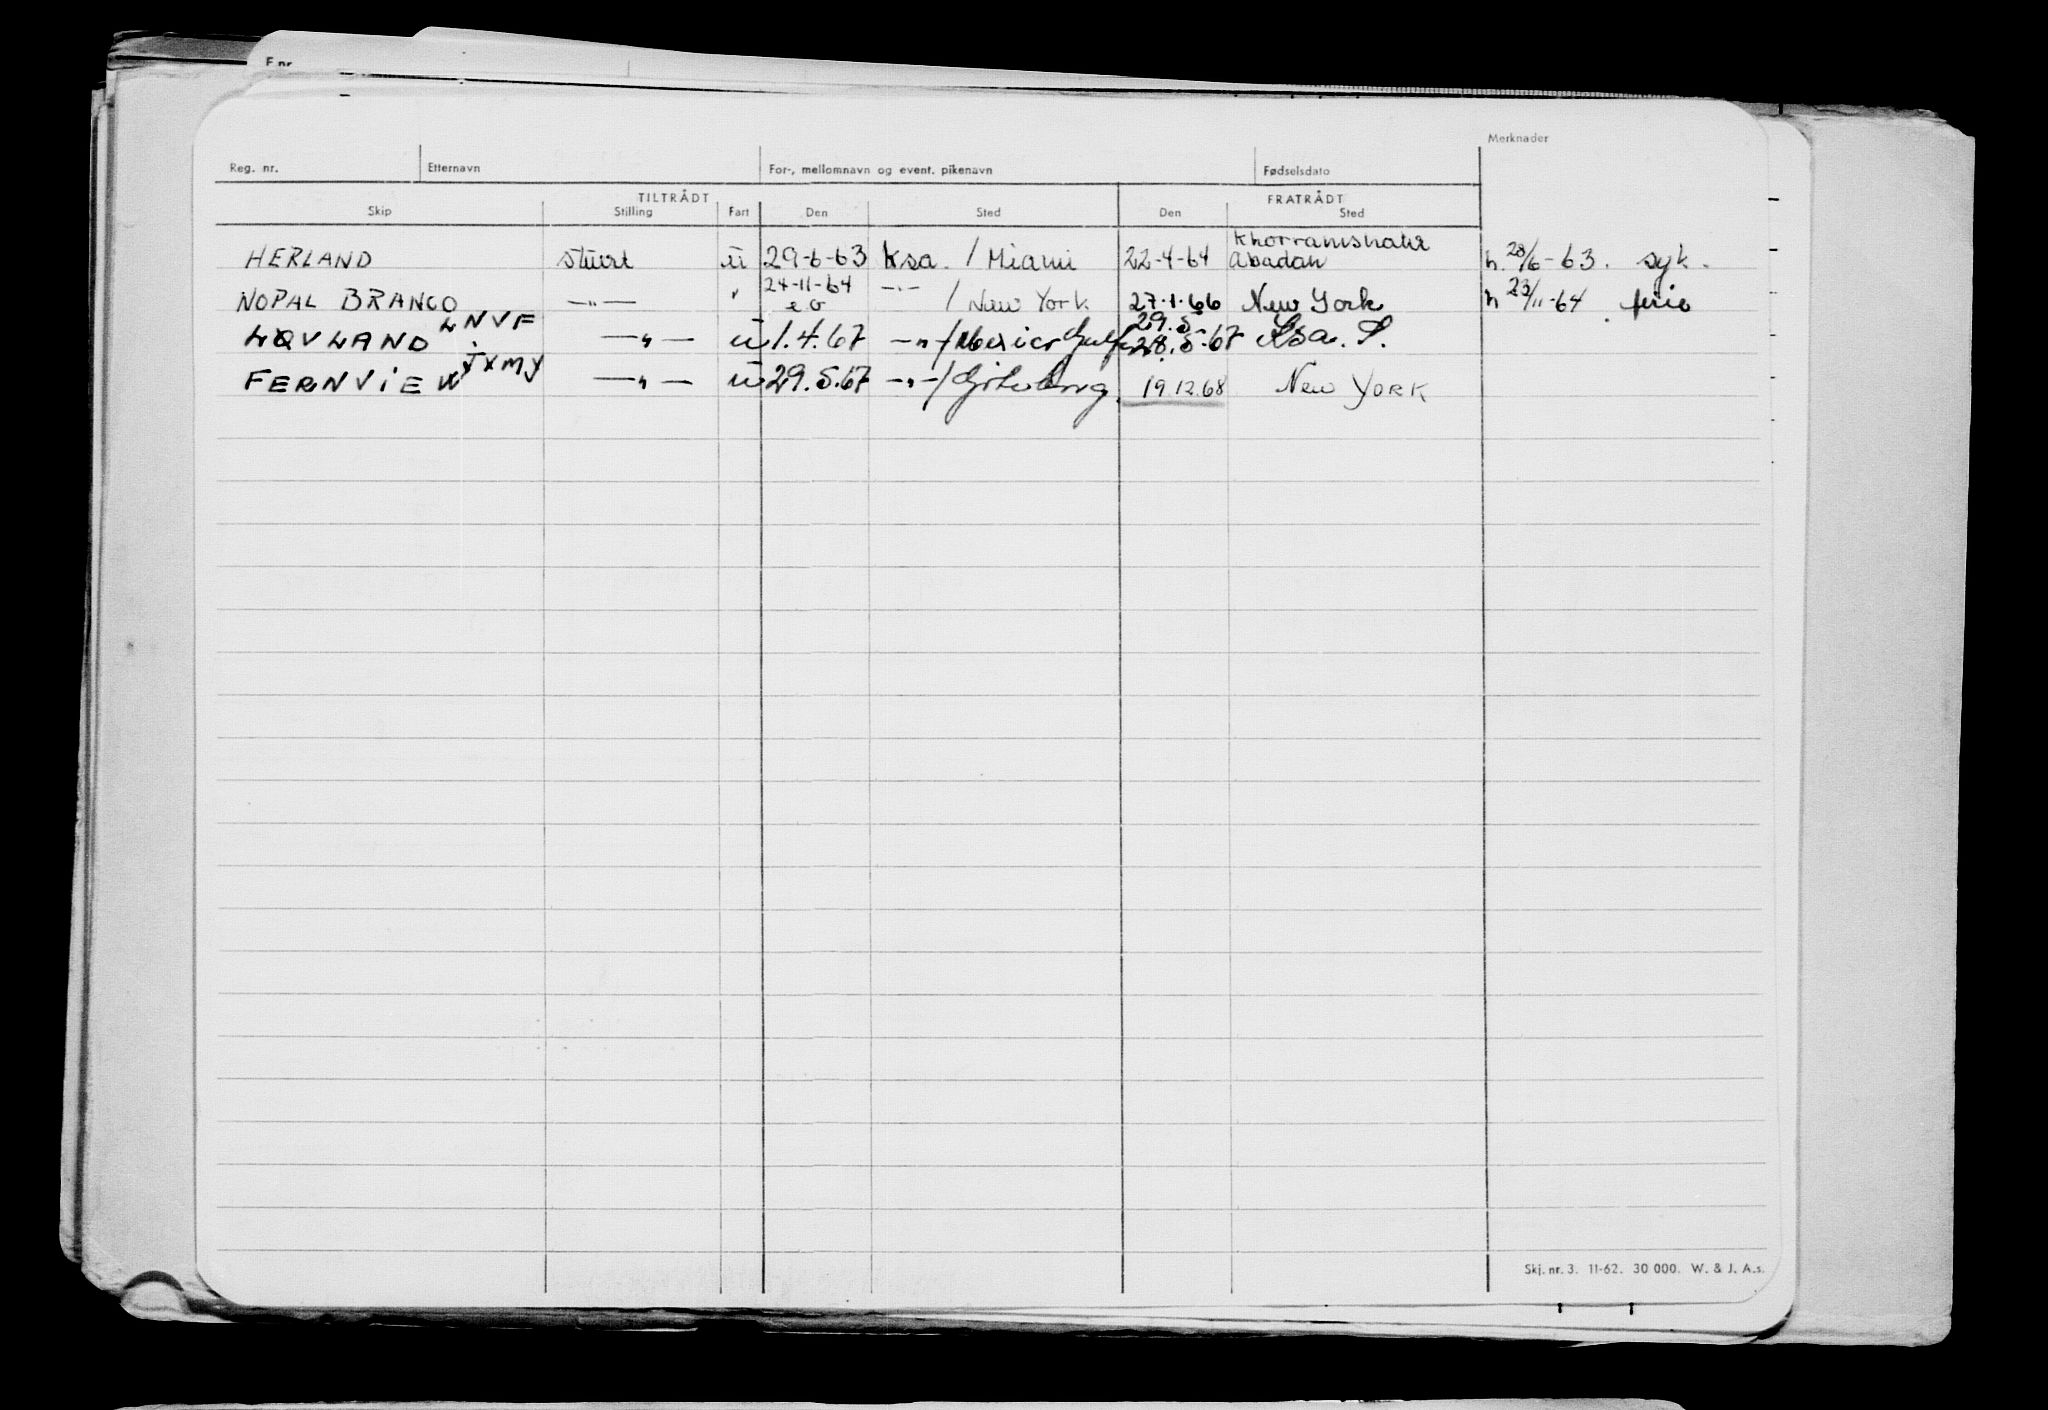 Merknader
Reg. nr. Etternavn For-, mellomnavn og event. pikenavn Fødselsdato
TILTRÅDT FRATRÅDT
Skip Stilling Fart Den Sted Den Sted
Khorramshahr
HERLAND stuert u 29-6-63 Ksa. / Miami 22-4-64 Abadan h. 28/6-63. syk.
24-11-64
NOPAL BRANCO —"— " e o —"— / New York 27.1.66 New York h 23/11-64 ferie
LNVF 29.5
LØVLAND —"— u 1.4.67 —"—/ Mexico Gulfen 28.5-67 Ksa. S.
JXMY
FERNVIEW —"— u 29.5.67 —"—/ Gøteborg 19.12.68 New YORK
Skj. nr. 3. 11-62. 30 000. W. & J. A.s.